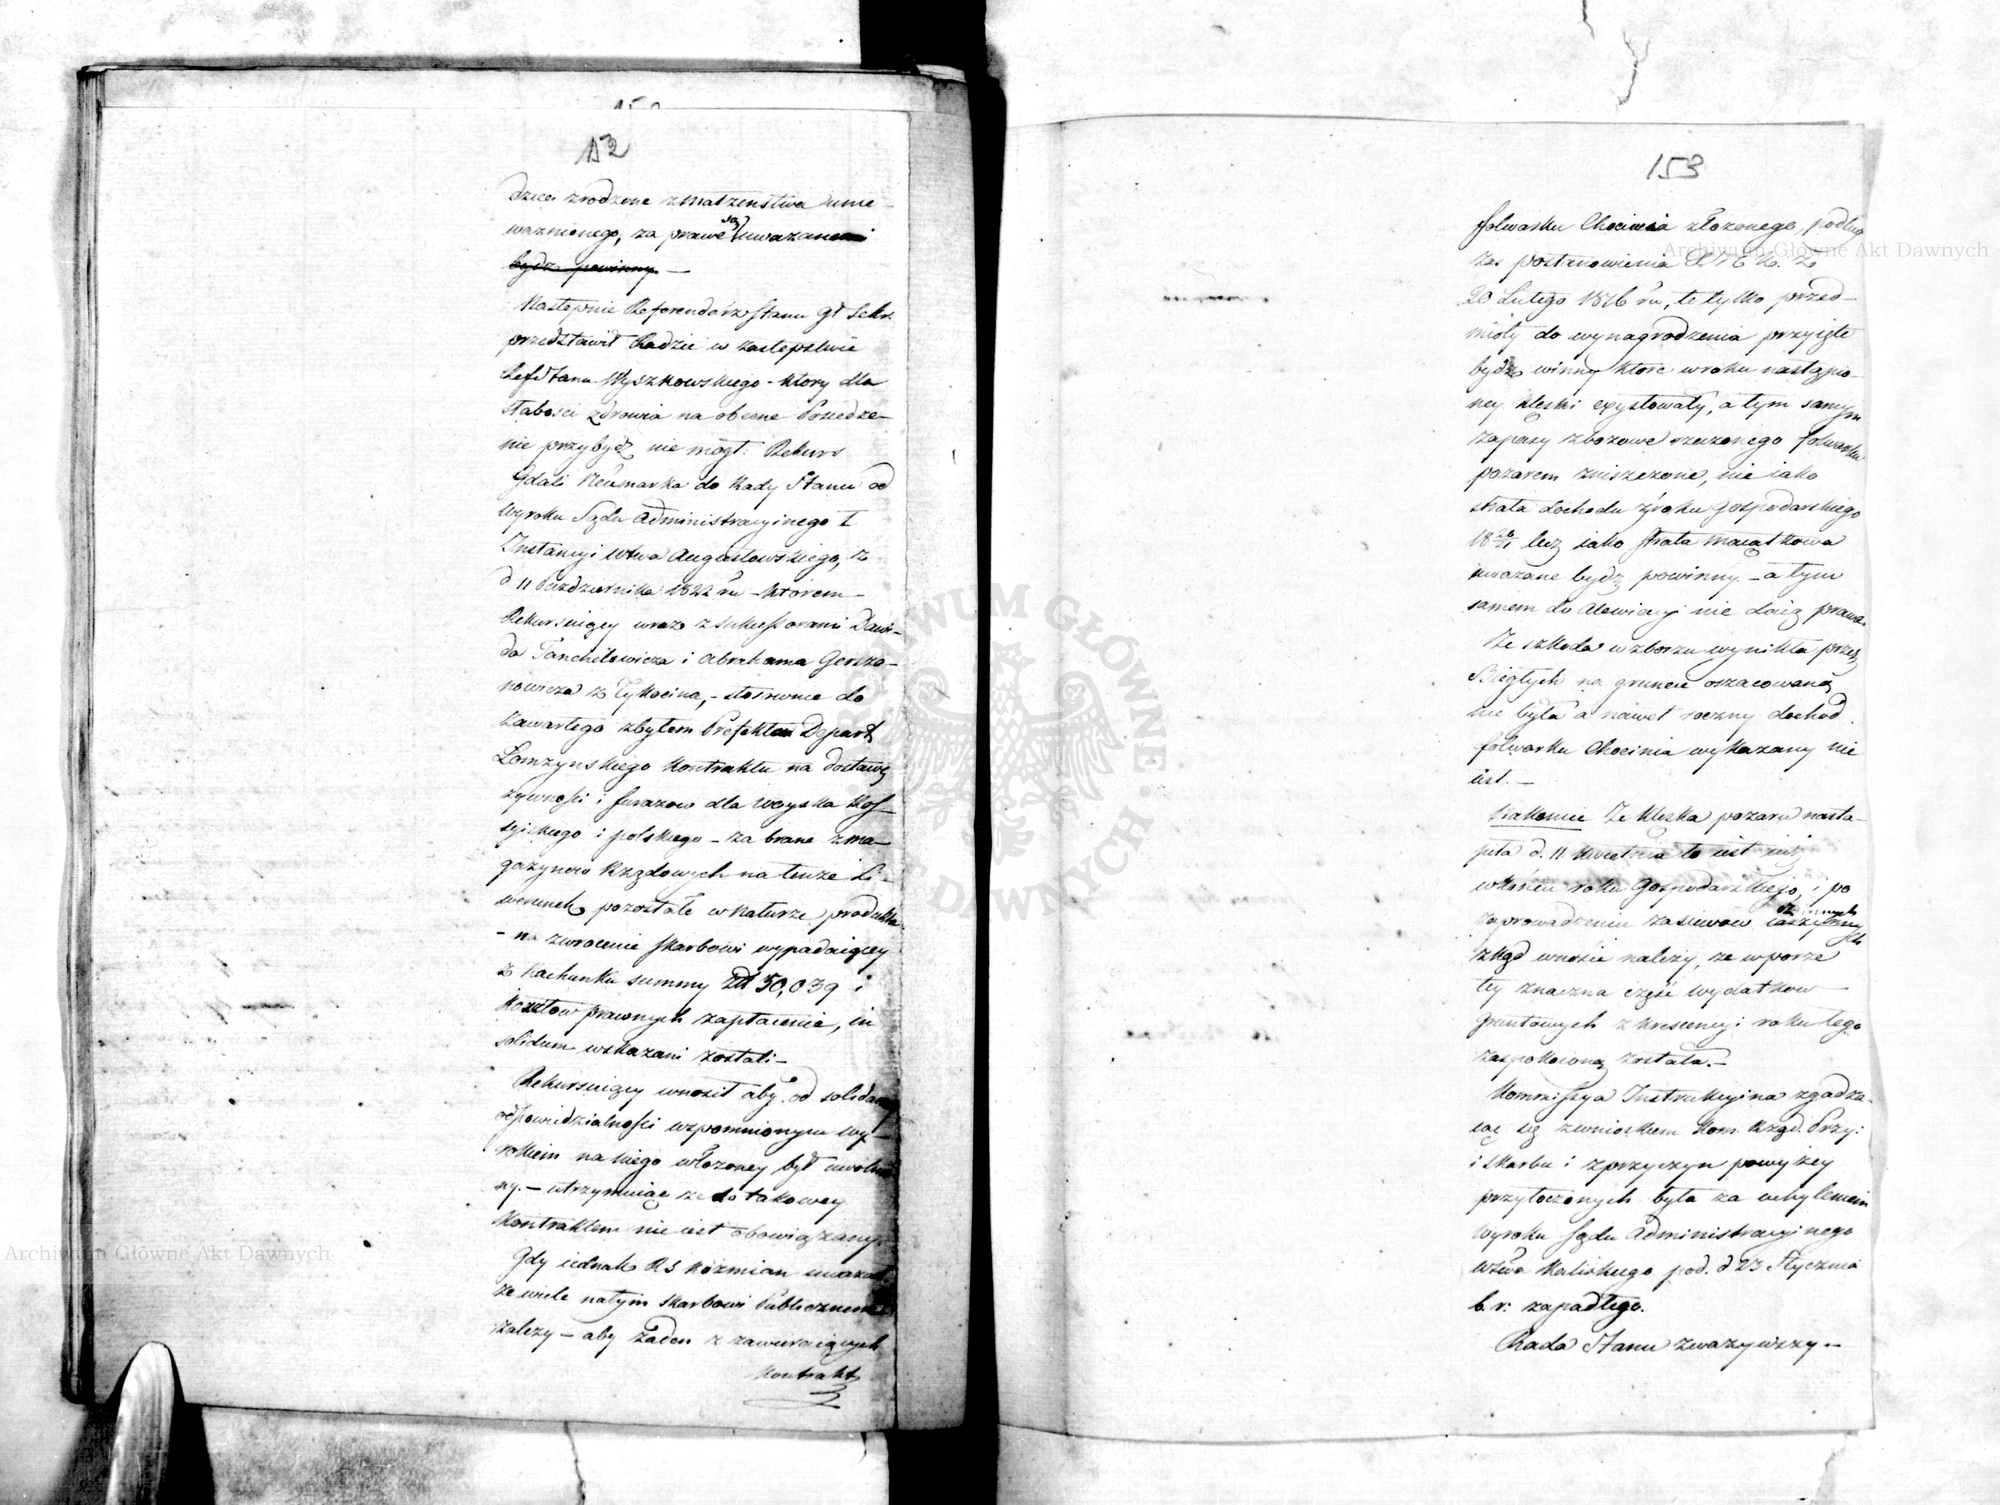 152
dzieci zrodzone z małzenstwa unie-
waznionego, za prawe są uwazane
bydz powinny. —
Następnie Referendarz Stanu Gł Sekr.
przedstawił Radzie w zastępstwie
Refer Stanu Wyszkowskiego - ktory dla
słabosci zdrowia na obecne Posiedze-
nie przybydź nie mogł: Rekurs
Gdali Neumarka do Rady Stanu od
wyroku Sądu Administracyinego I
Instancyi wdwa Augustowskiego, z
d 11 Pazdziernika 1822 ru - ktorem -
Rekursuiący wraz z sukcessorami Dawi-
da Tanchelowicza i Abrahama Gerszo-
nowicza z Tykocina, - stosownie do
zawartego z byłem Prefektem Depart
Łomzynskiego kontraktu na dostawę
zywnosci i furazow dla woyska Ros-
syiskiego i polskiego - za brane z ma-
gazynow Rządowych na tenze Li-
werunek pozostałe w naturze produkta
- na zwrocenie skarbowi wypadaiącey
z Rachunku summy Zł 50,039 i
kosztow prawnych zapłacenie, in
solidum wskazani zostali -
Rekursuiący wnosił aby od solidarney
odpowiedzialnosci wzpomnionym wy-
rokiem na niego włozoney był uwolnio
ny. - utrzymuiąc ze do takowey
kontraktem nie iest obowiązany.
Gdy iednak RS Kozmian uwazał
ze wiele na tym skarbowi Publicznemu
zalezy - aby zaden z zawieraiących
kontrakt
153
folwarku Chocimia złozonego, podług
zas postanowienia
20 Lutego 1816 ru, te tylko przed-
mioty do wynagrodzenia przyięte
bydz winny ktore w roku nastąpio-
ney klęski exystowały, a tym samym
zapasy zbozowe rzeczonego folwarku
pozarem zniszczone, nie iako
strata dochodu z roku Gospodarskiego
18 20/21 lecz iako strata maiątkowa
uwazane bydz powinny - a tym
samem do alewiacyi nie daią prawa.
Ze szkoda w zbozu wynikła przez
Biegłych na gruncie oszacowaną
nie była a nawet roczny dochod
folwarku Chocimia wykazany nie
iest. -
Nakoniec Ze klęska pozaru nastą-
piła d. 11 kwietnia to iest iuż
w koncu roku Gospodarskiego, i po
zaprowadzeniu zasiewow
zkąd wnosić należy, ze w porze
tey znaczna część wydatkow
gruntowych z krescencyi roku tego
zaspokoioną została. -
Kommissya Instrukcyina zgadza-
iąc się z wnioskiem Kom: Rząd: Przy:
i Skarbu i z przyczyn powyzey
przytoczonych była za uchyleniem
wyroku Sądu Administracyinego
wdwa Kaliskiego pod. d 23 Stycznia
b. r: zapadłego.
Rada Stanu zwazywszy -
Archiwum Główne Akt Dawnych
Archiwum Główne Akt Dawnych
ARCHIWUM GŁÓWNE AKT DAWNYCH